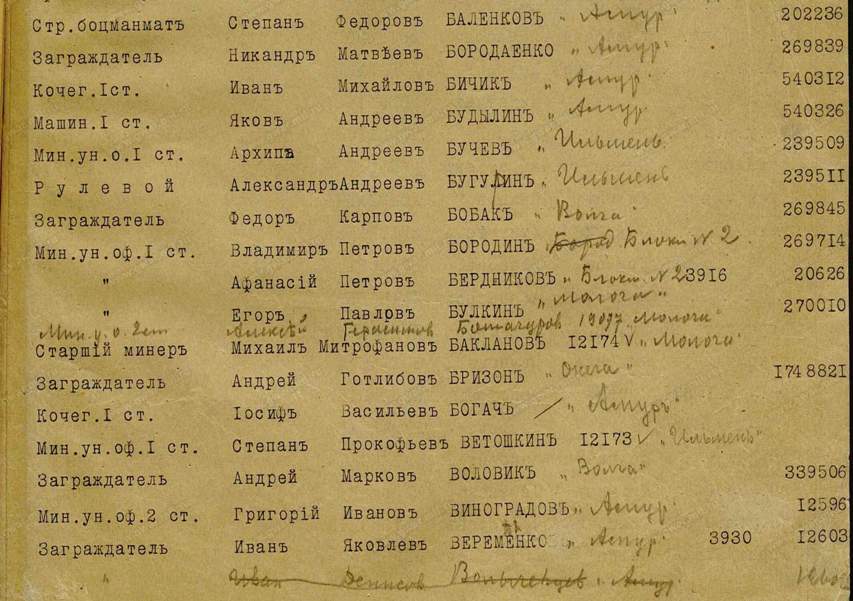 Стр.боцманматъ Степанъ Федоровъ БАЛЕНКОВЪ „Амуръ" 202236
Заграждатель Никандръ Матвѣевъ БОРОДАЕНКО „Амуръ" 269839
Кочег.Iст. Иванъ Михайловъ БИЧИКЪ „Амуръ" 540312
Машин.I ст. Яковъ Андреевъ БУДЫЛИНЪ „Амуръ" 540326
Мин.ун.о.I ст. Архипъ Андреевъ БУЧЕВЪ „Ильмень" 239509
Рулевой Александръ Андреевъ БУГУЛИНЪ „Ильмень" 239511
Заграждатель Федоръ Карповъ БОБАКЪ „Волга" 269845
Мин.ун.оф.I ст. Владимиръ Петровъ БОРОДИНЪ Блокш. N 2 269714
" Афанасій Петровъ БЕРДНИКОВЪ „Блокш. N 2 3916 20626
" Егоръ Павловъ БУЛКИНЪ „Молога" 270010
Мин.у.о. 2 ст Алексѣй Герасимов „Молога"
Старшій минеръ Михаилъ Митрофановъ БАКЛАНОВЪ 12174 √ „Молога"
Заграждатель Андрей Готлибовъ БРИЗОНЪ „Онега" 1748821
Кочег.I ст. Іосифъ Васильевъ БОГАЧЪ / „Амуръ"
Мин.ун.оф.I ст. Степанъ Прокофьевъ ВЕТОШКИНЪ 12173 √ „Ильмень"
Заграждатель Андрей Марковъ ВОЛОВИКЪ „Волга" 339506
Мин.ун.оф.2 ст. Григорій Ивановъ ВИНОГРАДОВЪ „Амуръ" 12596
Заграждатель Иванъ Яковлевъ ВЕРЕМЕНКО „Амуръ" 3930 12603
" Иван Денисов „Амур"